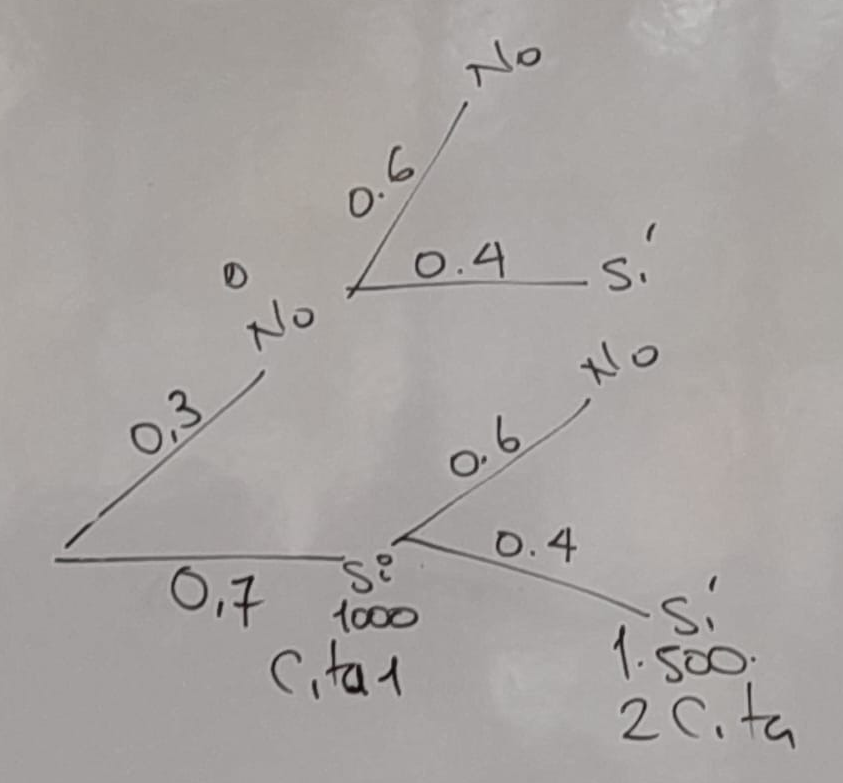 No
0.6
0.4 Sí
0
No
0,3
No
0.6
0.4
0,7
Si
1000
Cita 1
Sí
1.500.
2 Cita